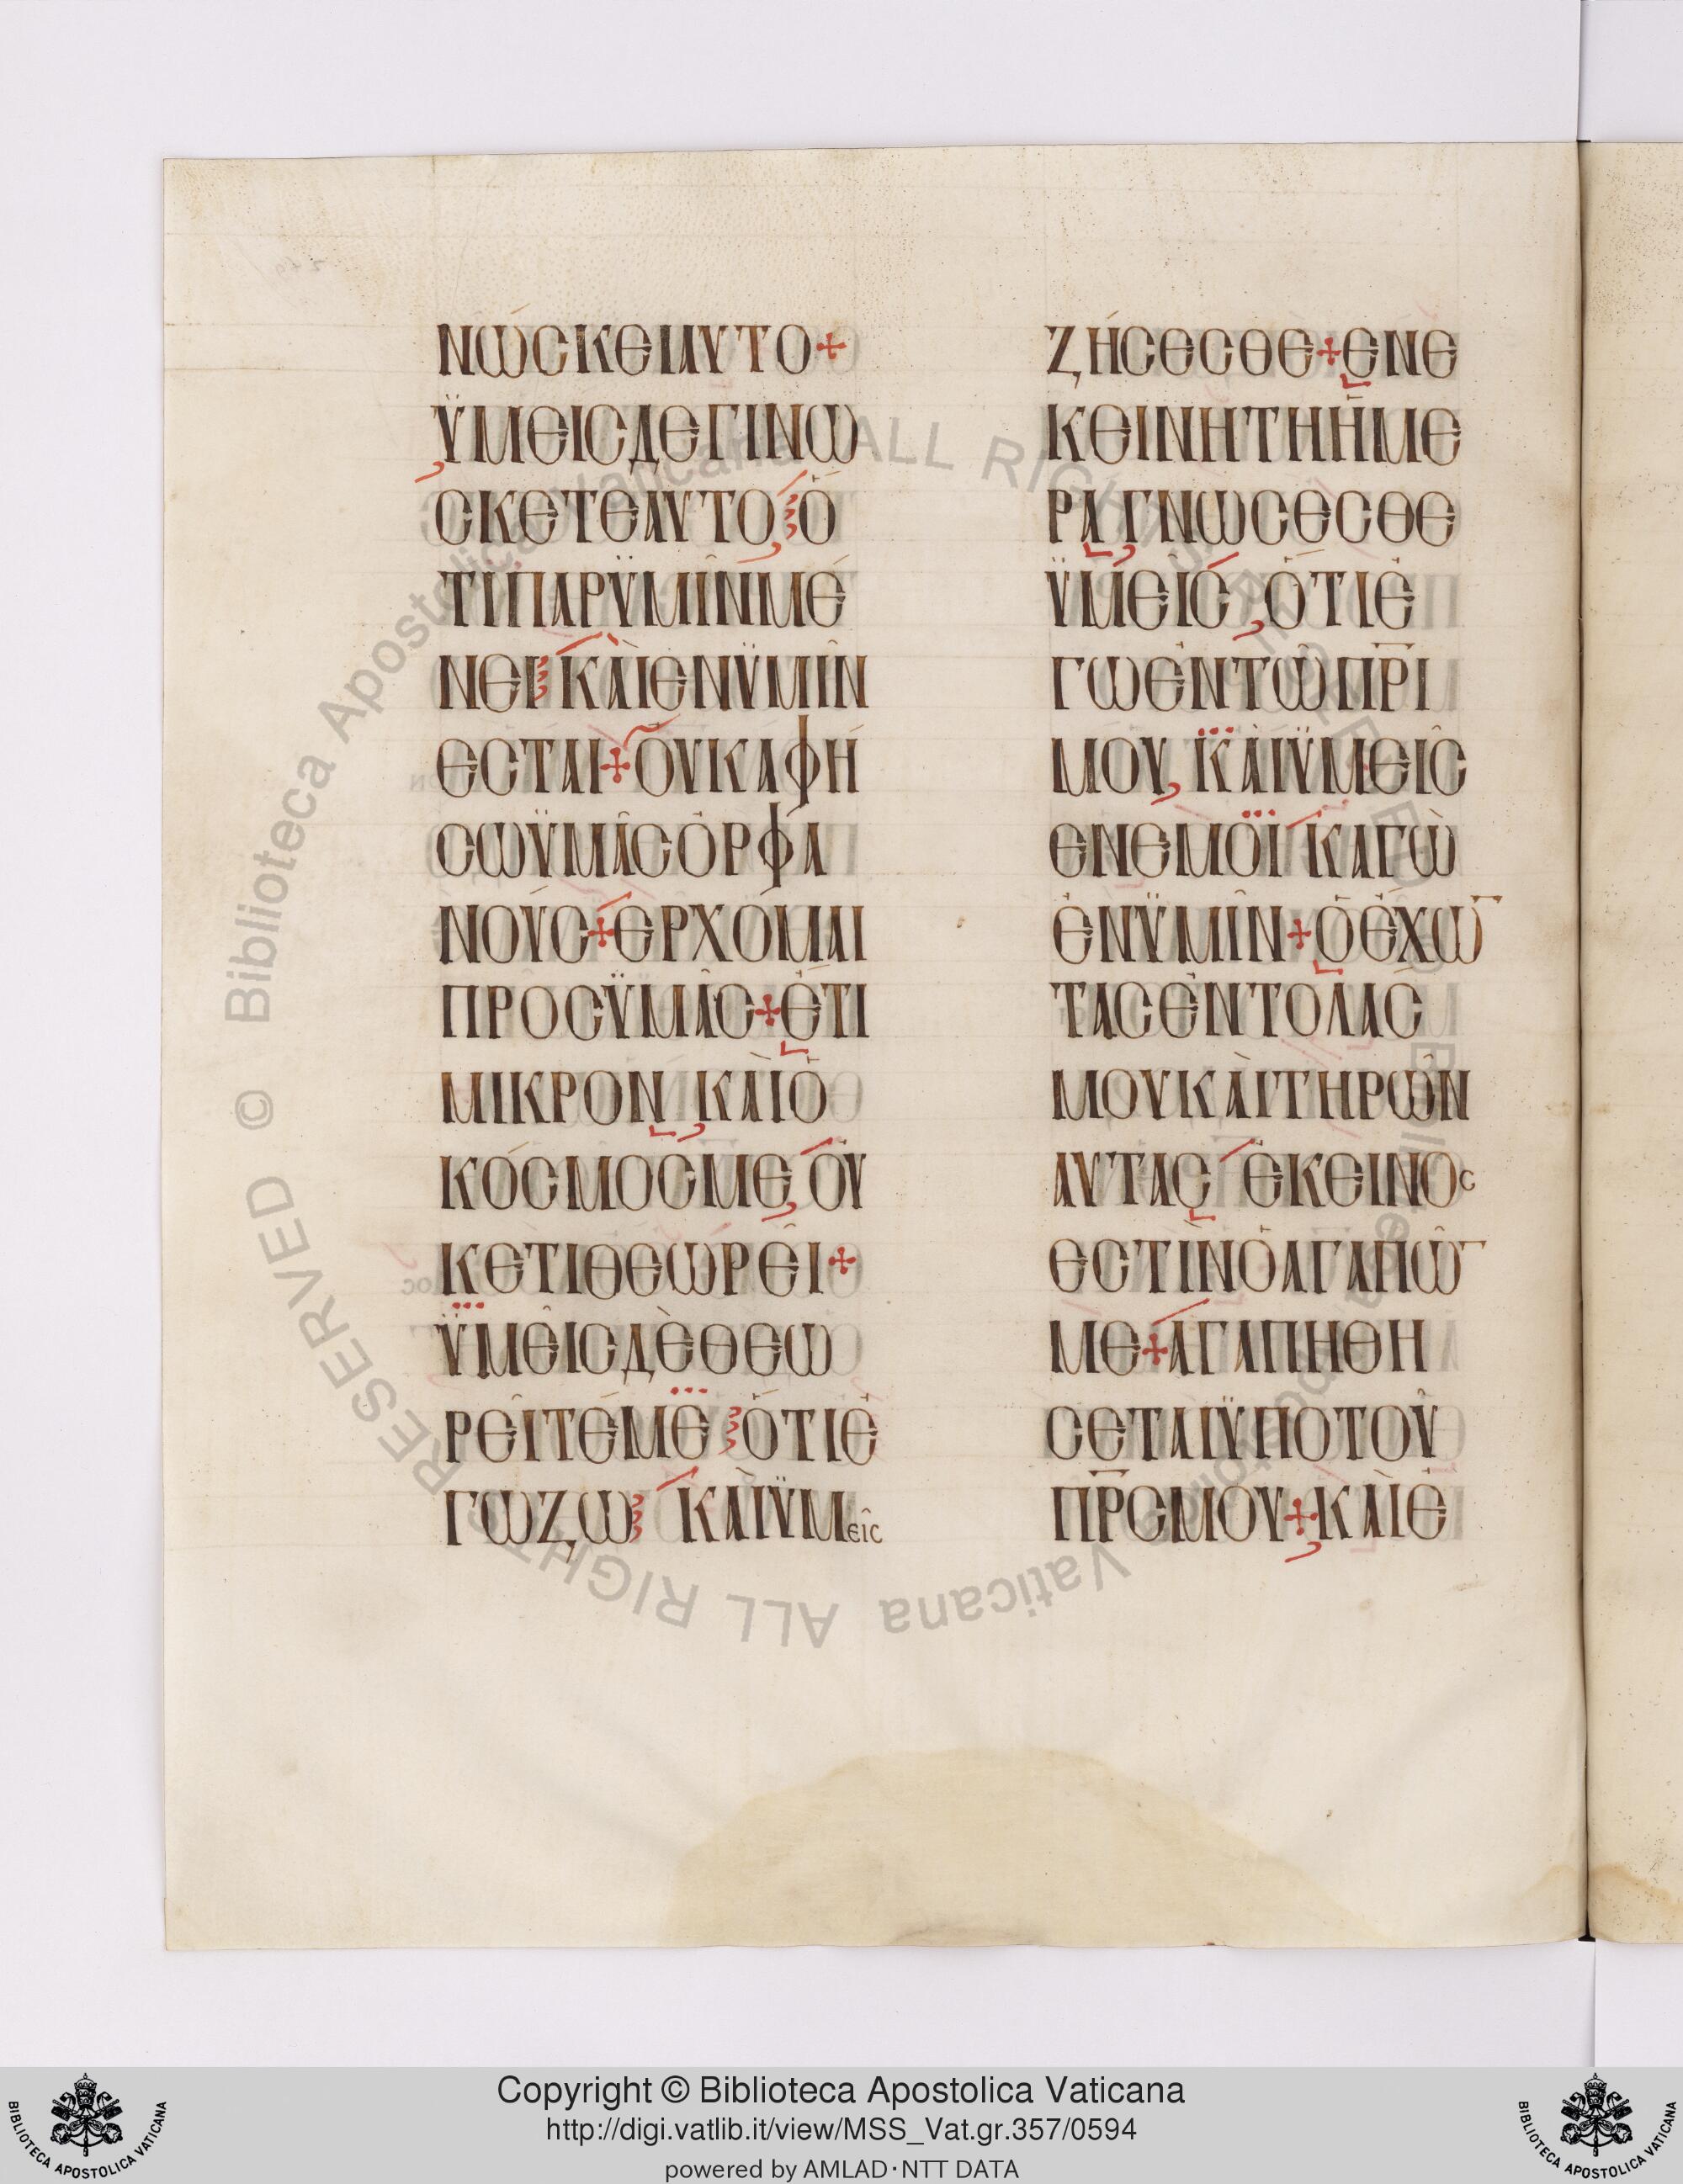 ΝΏϹΚΕΙΑΥΤΟ+
ΫΜΕΙϹΔΕΓΙΝΩ
ϹΚΕΤΕΑΥΤΟ Ὁ
ΤΙΠΑΡΫΜΙ͂ΝΜΈ
ΝΕΙ ΚᾺΙΕΝΫΜΙ͂Ν
ΕϹΤΑΙ+ΟΥΚΑΦΉ
ϹΩΫΜΑ͂ϹὈΡΦΑ
ΝΟΎϹ+ΕΡΧΌΜΑΙ
ΠΡΟϹΫΜΑ͂Ϲ+ἜΤΙ
ΜΙΚΡΟΝ ΚᾺΙὉ
ΚΌϹΜΟϹΜΕ ΟΥ
ΚΕΤΙΘΕΩΡΕΙ͂+
ΫΜΕΙ͂ϹΔῈΘΕΩ
ΡΕΙ͂ΤΈΜΕ ὍΤΙἘ
ΓΩΖΩ ΚᾺΙΫΜΕΙ͂Ϲ
ΖΉϹΕϹΘΕ+ΕΝΕ
ΚΕΙΝΗΤΗΗΜΕ
ΡΑ ΓΝΩϹΕϹΘΕ
ΫΜΕΙ͂Ϲ ὍΤΙἘ
ΓΩἘΝΤΩ͂Π̅Ρ̅Ι
ΜΟΥ ΚᾺΙΫΜΕΙ͂Ϲ
ΕΝΕΜΟΪ ΚΑΓῺ
ἘΝΫΜΙ͂Ν+ὉἜΧΩ̅
ΤΑϹἘΝΤΟΛΑϹ
ΜΟΥΚᾺΙΤΗΡΩ͂Ν
ΑΥΤΑϹ ἘΚΕΙΝΟϹ
ΕϹΤῚΝὉΑΓΑΠΩ͂̅
ΜΕ+ΑΓΑΠΗΘΗ
ϹΕΤΑΙΫΠΟΤΟΥ͂
Π̅Ρ̅ϹΜΟΥ+ΚᾺΙἘ
Copyright © Biblioteca Apostolica Vaticana
http://digi.vatlib.it/view/MSS_Vat.gr.357/0594
powered by AMLAD·NTT DATA
BIBLIOTECA APOSTOLICA VATICANA
BIBLIOTECA APOSTOLICA VATICANA